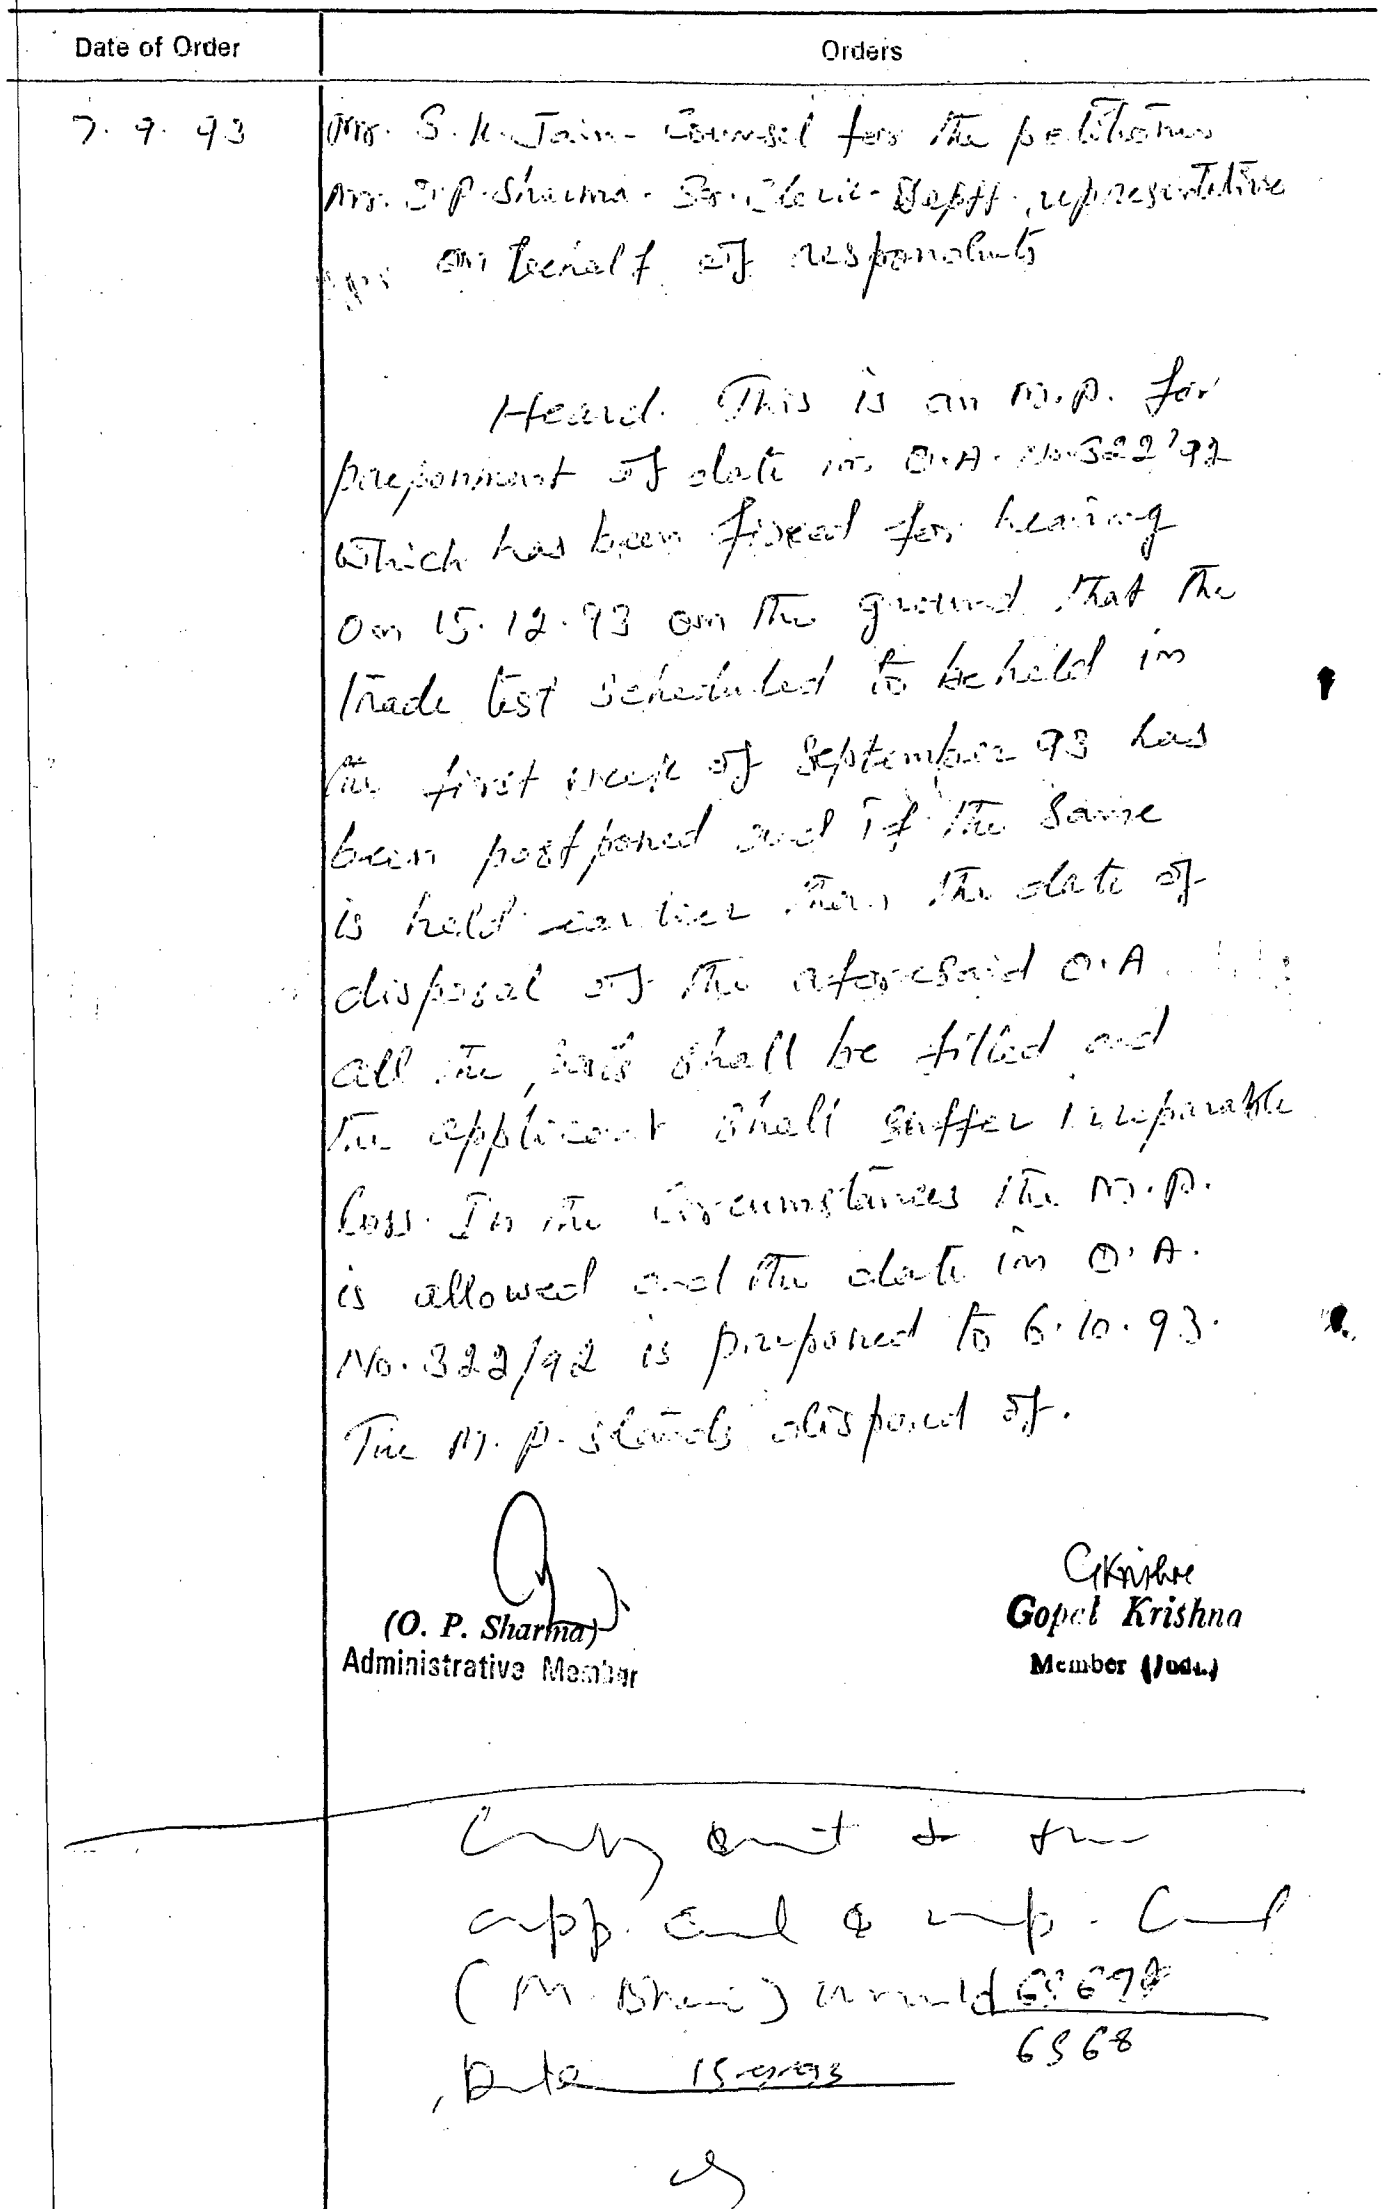 Date of Order
Orders
7.9.93
Mr. S.K. Jain - Counsel for the petitioner
Mr. S.P. Sharma - Sr. Clerk - Deptt. representative
on behalf of respondents
Heard. This is an M.P. for
preponment of date in O.A. No. 322/92
which has been fixed for hearing
on 15.12.93 on the ground that the
trade test scheduled to be held in
the first week of September 93 has
been postponed and if the same
is held earlier than the date of
disposal of the aforesaid O.A.
all the shall be filled and
the applicant shall suffer irreparable
loss. In the circumstances the M.P.
is allowed and the date in O.A.
No. 322/92 is preponed to 6.10.93.
The M.P. stands disposed of.
(O. P. Sharma)
Administrative Member
GKrishna
Gopal Krishna
Member (Judl.)
Copy sent to the
app.
(M.
6568
Date 15-9-93